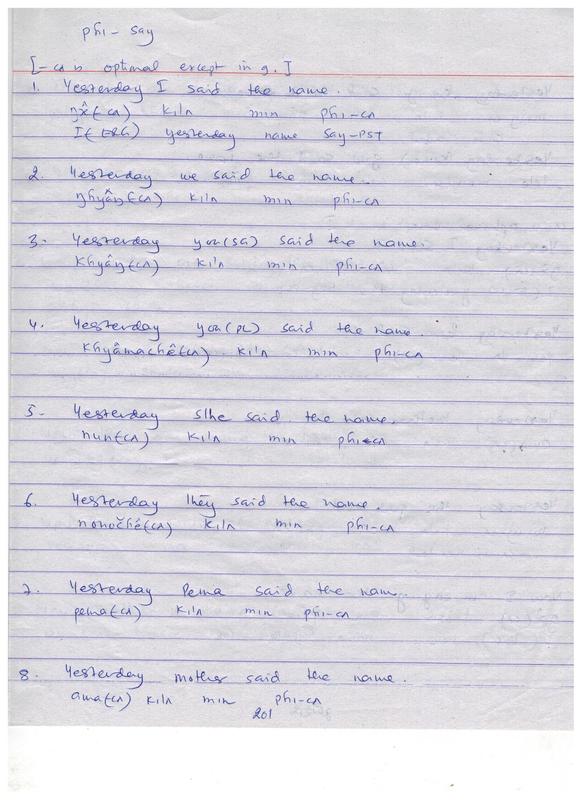 phi - say
[-cʌ is optional except in 9.]
1. Yesterday I said the name.
kiʔn min phi-cʌ
I(ERG) yesterday name say-PST
2. Yesterday we said the name.
ŋhyâŋ(cʌ) kiʔn min phi-cʌ
3. Yesterday you(SG) said the name.
khyâŋ(cʌ) kiʔn min phi-cʌ
4. Yesterday you(PL) said the name.
khyâmachê(cʌ) kiʔn min phi-cʌ
5. Yesterday s/he said the name.
hun(cʌ) kiʔn min phi-cʌ
6. Yesterday they said the name.
kiʔn min phi-cʌ
7. Yesterday Pema said the name.
pema(cʌ) kiʔn min phi-cʌ
8. Yesterday mother said the name.
ama(cʌ) kiʔn min phi-cʌ
201